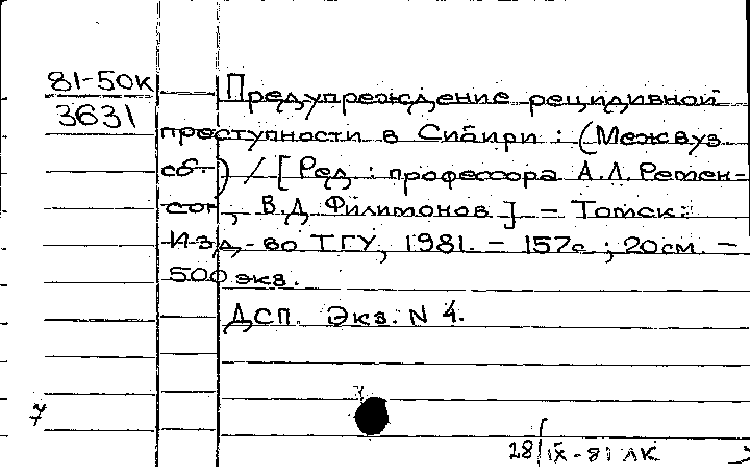 81-50К
3631
Предупреждение рецидивной
преступности в Сибири : (Межвуз.
сб.) / [Ред : профессора А.Л. Ремен-
сон, В.Д. Филимонов] – Томск:
Изд-во ТГУ, 1981. – 157с ; 20см. –
500 экз.
ДСП. Экз. N 4.
7
28/IX-81 ЛК